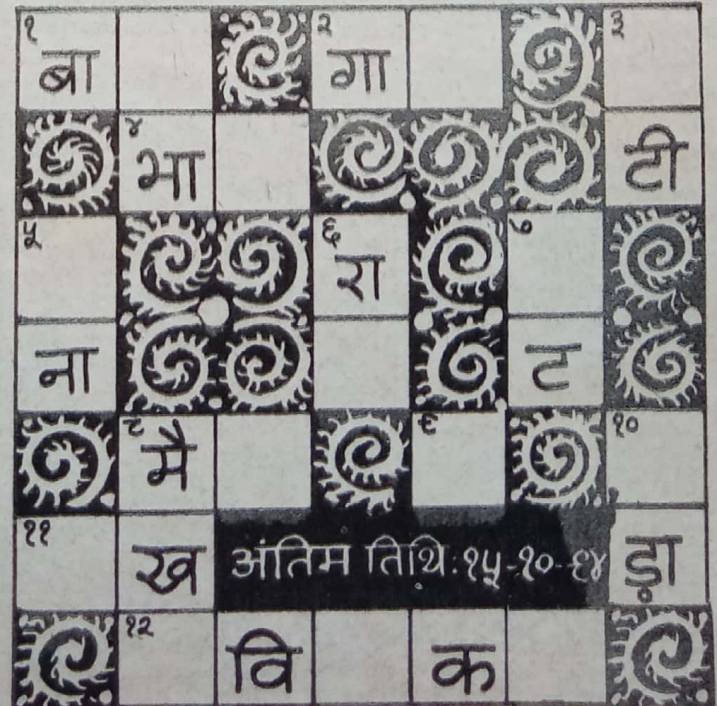 १ बा २ गा ३
४ भा टी
५ ६ रा ७
ना ट
८ मै ९ १०
११ ख अंतिम तिथि:१५-१०-९४ ड़ा
१२ वि क